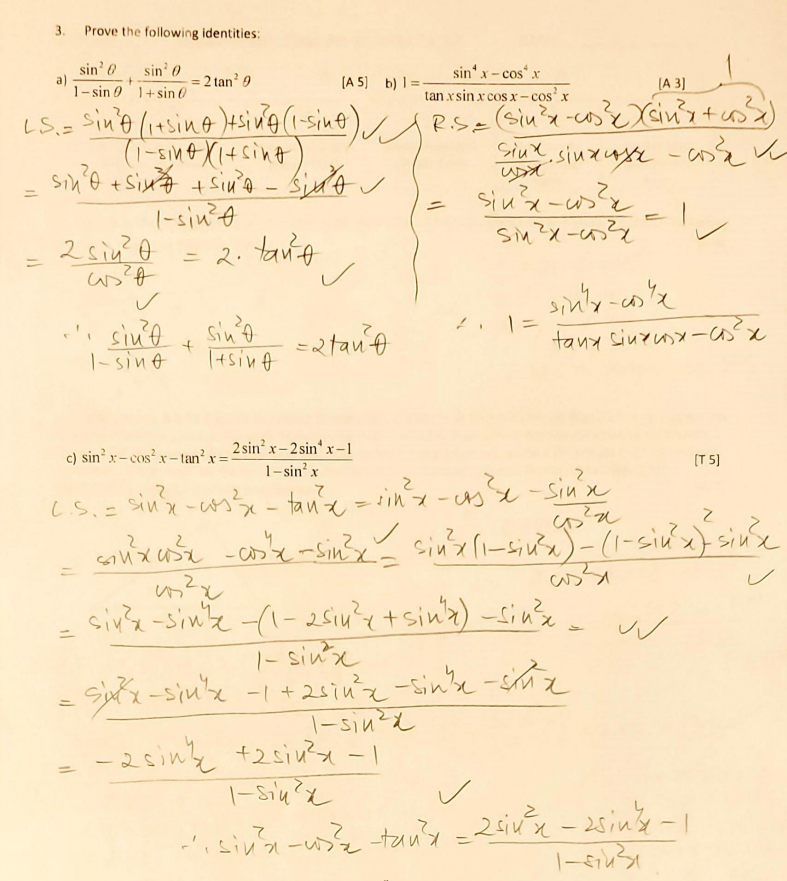 3. Prove the following identities:
a) sin² θ / (1 − sin θ) + sin² θ / (1 + sin θ) = 2 tan² θ [A 5]
L.S. = (sin²θ (1+sinθ) + sin²θ (1−sinθ)) / ((1−sinθ)(1+sinθ)) ✓✓
= (sin²θ + sin³θ + sin²θ − sin³θ) / (1−sin²θ) ✓
= 2 sin²θ / cos²θ = 2 · tan²θ ✓
✓
∴ sin²θ / (1−sinθ) + sin²θ / (1+sinθ) = 2tan²θ
b) 1 = (sin⁴ x − cos⁴ x) / (tan x sin x cos x − cos² x) [A 3]
1
R.S. = (sin²x − cos²x)(sin²x + cos²x) / (sinx/cosx · sinx cosx − cos²x) ✓✓
= (sin²x − cos²x) / (sin²x − cos²x) = 1 ✓
∴ 1 = (sin⁴x − cos⁴x) / (tanx sinx cosx − cos²x)
c) sin² x − cos² x − tan² x = (2 sin² x − 2 sin⁴ x − 1) / (1 − sin² x) [T 5]
L.S. = sin²x − cos²x − tan²x = sin²x − cos²x − sin²x / cos²x
= (sin²x cos²x − cos⁴x − sin²x) / cos²x ✓ = (sin²x (1−sin²x) − (1−sin²x)² − sin²x) / cos²x ✓
= (sin²x − sin⁴x − (1 − 2sin²x + sin⁴x) − sin²x) / (1 − sin²x) = ✓✓
= (sin²x − sin⁴x − 1 + 2sin²x − sin⁴x − sin²x) / (1−sin²x)
= (−2sin⁴x + 2sin²x − 1) / (1−sin²x) ✓
∴ sin²x − cos²x − tan²x = (2sin²x − 2sin⁴x − 1) / (1−sin²x)